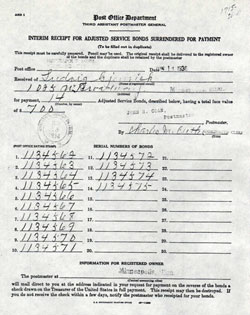 Post Office Department
THIRD ASSISTANT POSTMASTER GENERAL
INTERIM RECEIPT FOR ADJUSTED SERVICE BONDS SURRENDERED FOR PAYMENT
(To be filled out in duplicate)
This receipt must be carefully prepared. Pencil may be used. The original receipt shall be delivered to the registered owner
of the bonds and the duplicate shall be retained by the postmaster
Post office
Received of Ludwig
1095
for payment, 14 Adjusted Service Bonds, described below, having a total face value
of $ 700
Postmaster
Postmaster.
By Charles M.
POST OFFICE DATING STAMP
SERIAL NUMBERS OF BONDS
1. 1134562 11. 1134572
2. 1134563 12. 1134573
3. 1134564 13. 1134574
4. 1134565 14. 1134575
5. 1134566 15.
6. 1134567 16.
7. 1134568 17.
8. 1134569 18.
9. 1134570 19.
10. 1134571 20.
INFORMATION FOR REGISTERED OWNER
The postmaster at Minneapolis, Minn.
will mail direct to you at the address indicated in your request for payment on the reverse of the bonds a
check drawn on the Treasurer of the United States in full payment. This receipt may then be destroyed. If
you do not receive the check within a few days, notify the postmaster who receipted for bonds.